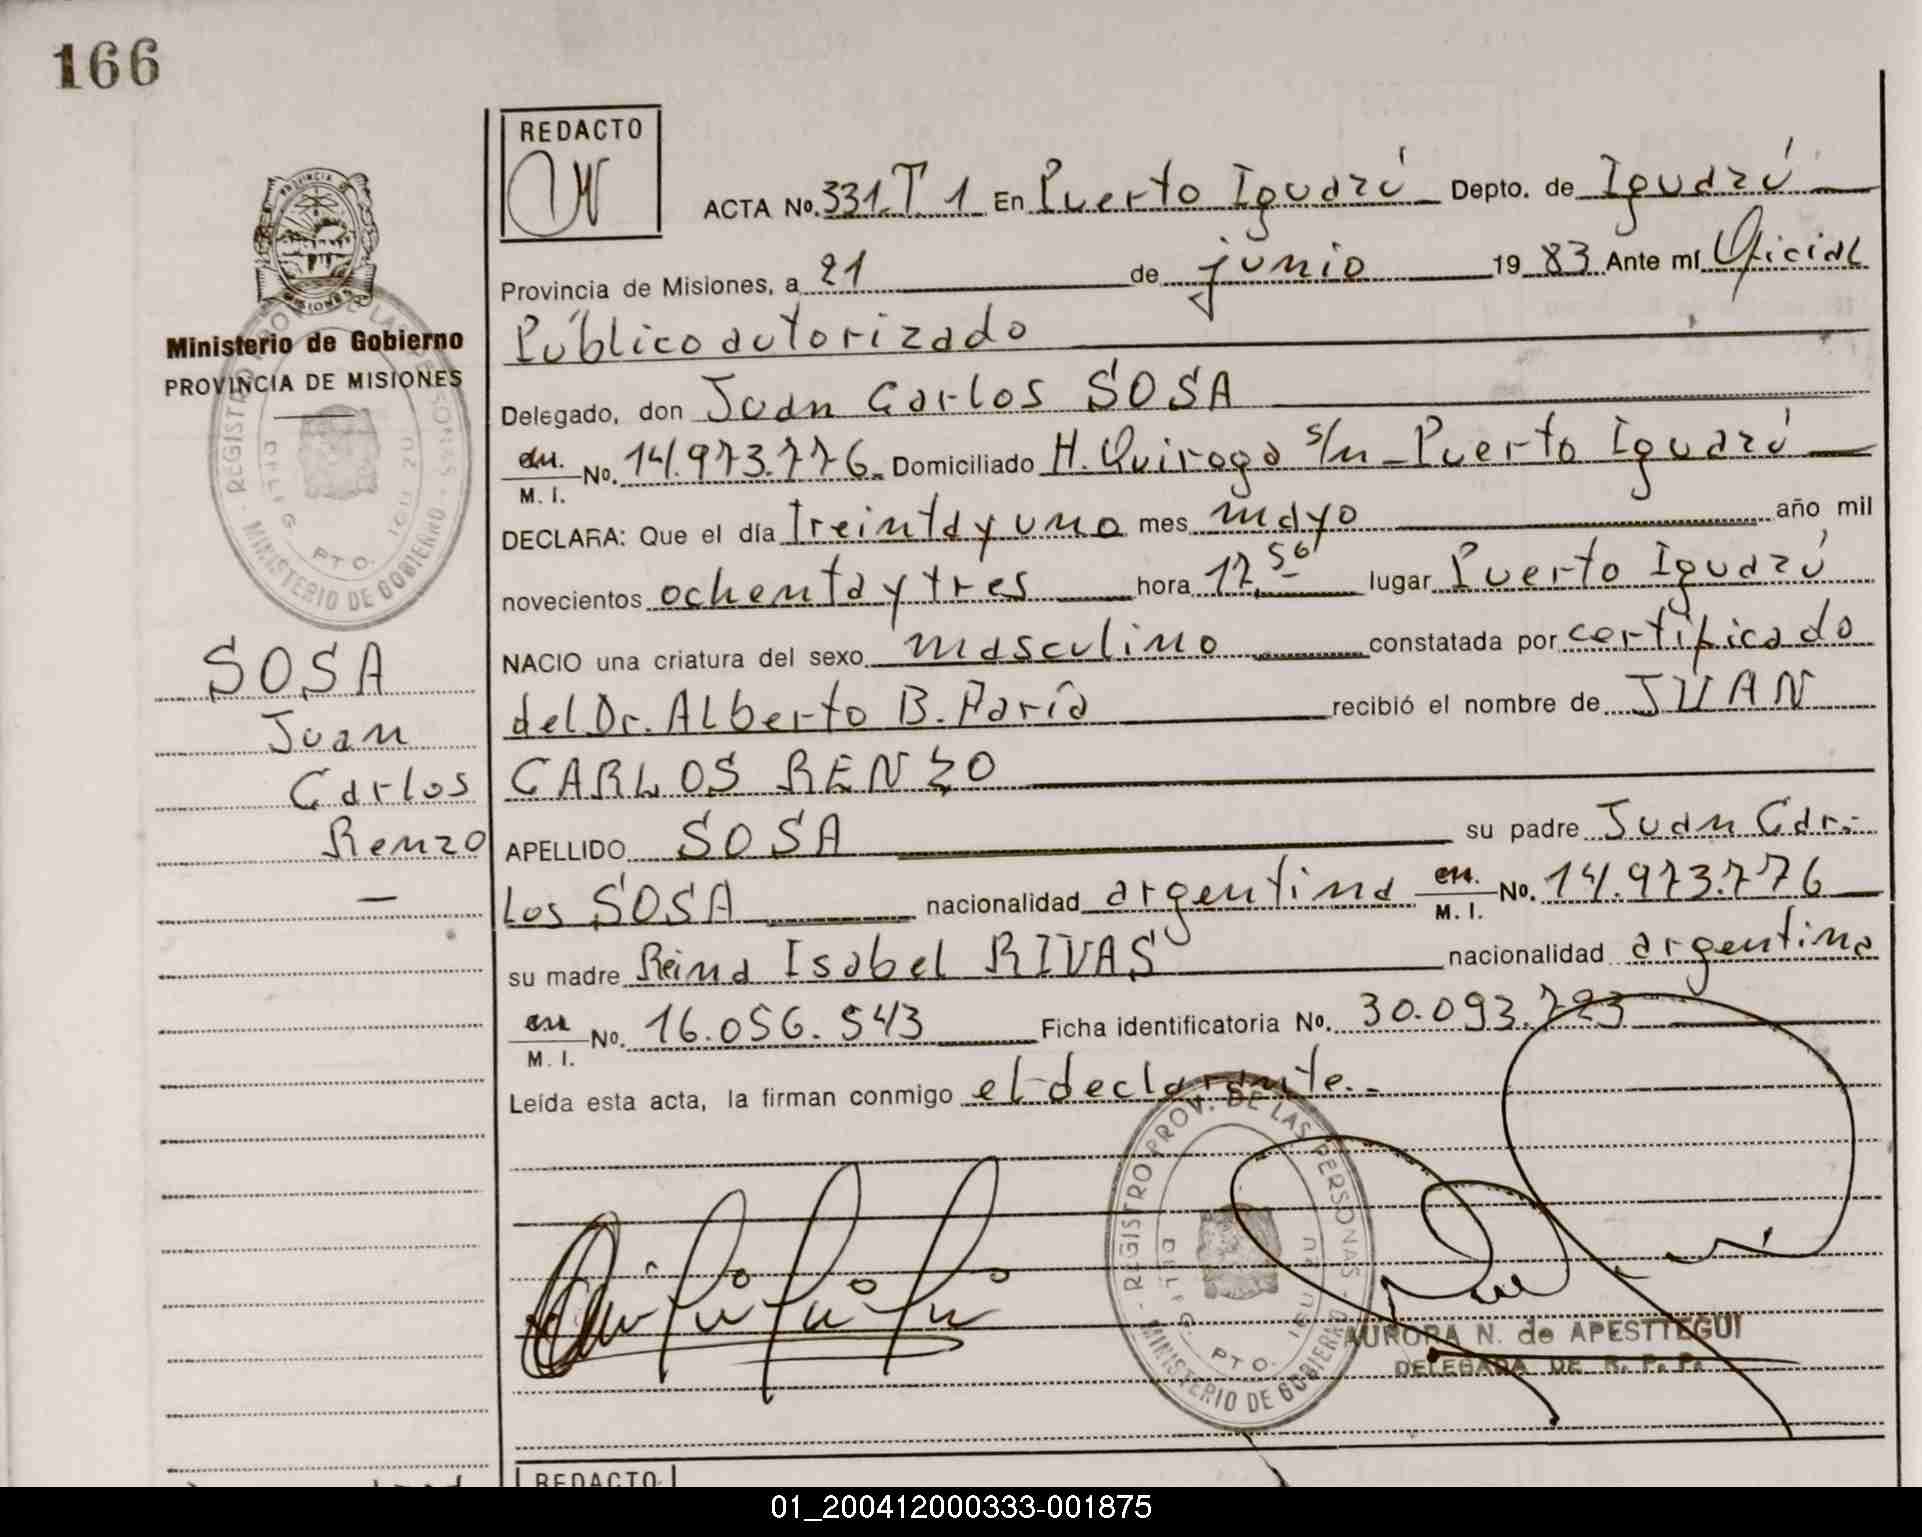 166
REDACTO
ACTA No. 331.T 1 En Puerto Iguazú Depto. de Iguazú
Provincia de Misiones, a 21 de junio 1983 Ante mí Oficial
Público autorizado
Delegado, don Juan Carlos SOSA
M. I. No. 14.973.776 Domiciliado H. Quiroga s/n - Puerto Iguazú
DECLARA: Que el día treinta y uno mes mayo año mil
novecientos ochenta y tres hora 17,50 lugar Puerto Iguazú
NACIO una criatura del sexo masculino constatada por certificado
del Dr. Alberto B. Faría recibió el nombre de JUAN
CARLOS RENZO
APELLIDO SOSA su padre Juan Car-
los SOSA nacionalidad argentina M. I. No. 14.973.776
su madre Reina Isabel RIVAS nacionalidad argentina
M. I. No. 16.056.543 Ficha identificatoria No. 30.093.723
Leída esta acta, la firman conmigo el declarante.-
PROVINCIA DE MISIONES
Ministerio de Gobierno
PROVINCIA DE MISIONES
REGISTRO PROV. DE LAS PERSONAS - MINISTERIO DE GOBIERNO -
DELEG. PTO. IGUAZU
SOSA
Juan
Carlos
Renzo
-
REGISTRO PROV. DE LAS PERSONAS - MINISTERIO DE GOBIERNO -
DELEG. PTO. IGUAZU
AURORA N. de APESTTEGUI
DELEGADA DE R. P. P.
REDACTO
01_200412000333-001875